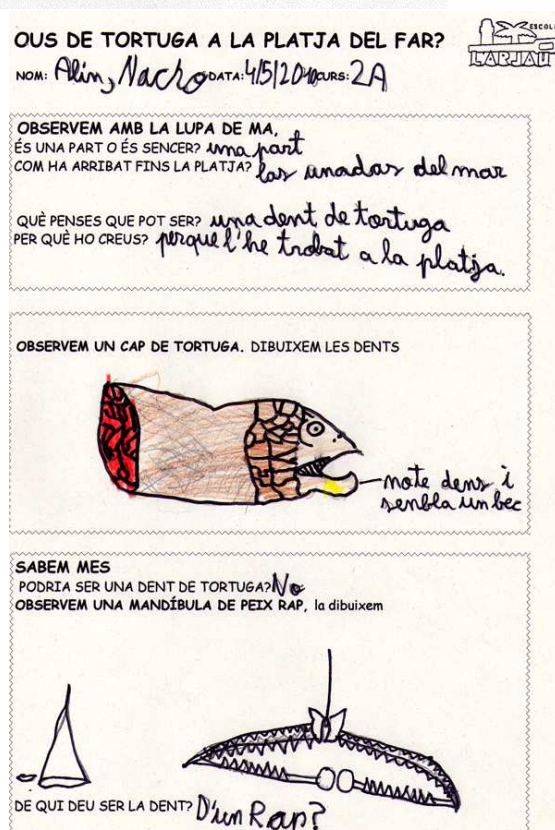 OUS DE TORTUGA A LA PLATJA DEL FAR?
ESCOLA
L'ARJAU
NOM: Alin, Nacho DATA: 4/5/2010 CURS: 2A
OBSERVEM AMB LA LUPA DE MA,
ÉS UNA PART O ÉS SENCER? una part
COM HA ARRIBAT FINS LA PLATJA? las unadas del mar
QUÈ PENSES QUE POT SER? una dent de tortuga
PER QUÈ HO CREUS? perque l'he trobat a la platja.
OBSERVEM UN CAP DE TORTUGA. DIBUIXEM LES DENTS
note dens i
senbla un bec
SABEM MES
PODRIA SER UNA DENT DE TORTUGA? No
OBSERVEM UNA MANDÍBULA DE PEIX RAP, la dibuixem
DE QUI DEU SER LA DENT? D'un Rap?